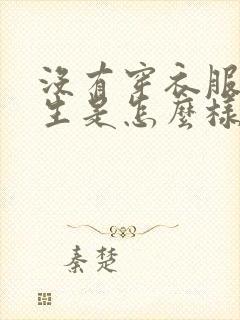 沒有穿衣服
生是怎麼樣
秦楚